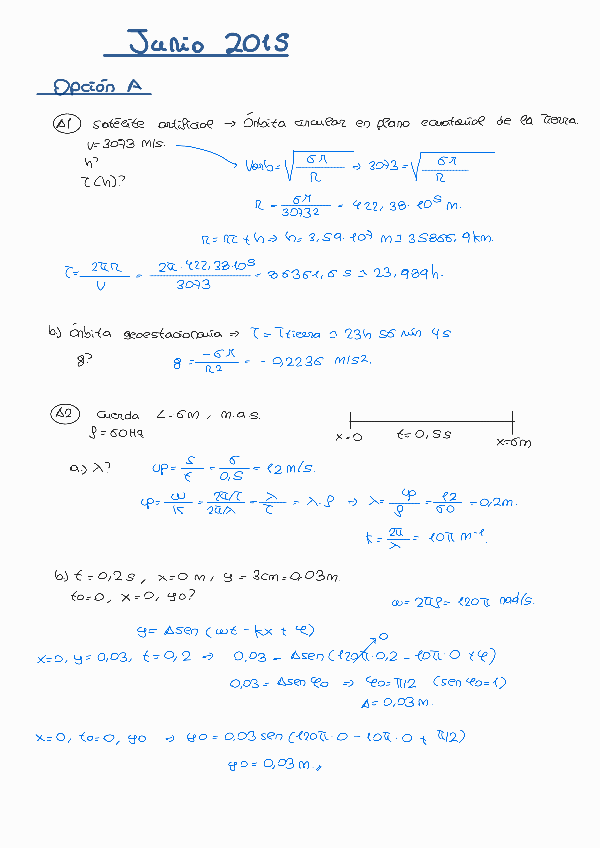 Junio 2015
Opción A
A1 Satélite artificial → Órbita circular en plano ecuatorial de la Tierra.
v = 3073 m/s.
h?
T(h)?
Vorb = √(GM/R) → 3073 = √(GM/R)
R = GM/3073² = 422,38·10⁵ m.
R = RT + h ⇒ h = 3,59·10⁷ m ≃ 35866,9 km.
T = 2πR/v = 2π·422,38·10⁵/3073 = 86361,6 s ≃ 23,989 h.
b) Órbita geoestacionaria ⇒ T = T tierra ≃ 23h 56 min 4s
g?
g = -GM/R² = -0,2236 m/s².
A2 Cuerda L = 6m, m.a.s.
f = 60Hz
x=0 t = 0,5s x=6m
a) λ? vp = s/t = 6/0,5 = 12 m/s.
vp = ω/k = 2π/T / 2π/λ = λ/T = λ·f ⇒ λ = vp/f = 12/60 = 0,2m.
k = 2π/λ = 10π m⁻¹.
b) t = 0,2 s, x = 0 m, y = 3cm = 0,03m.
to=0, x=0, yo?
ω = 2πf = 120π rad/s.
y = A sen (ωt - kx + φ)
0
x=0, y = 0,03, t = 0,2 → 0,03 = A sen (120π·0,2 - 10π·0 + φ)
0,03 = A sen φo ⇒ φo = π/2 (sen φo = 1)
A = 0,03 m.
x=0, to=0, yo ⇒ yo = 0,03 sen (120π·0 - 10π·0 + π/2)
yo = 0,03 m.